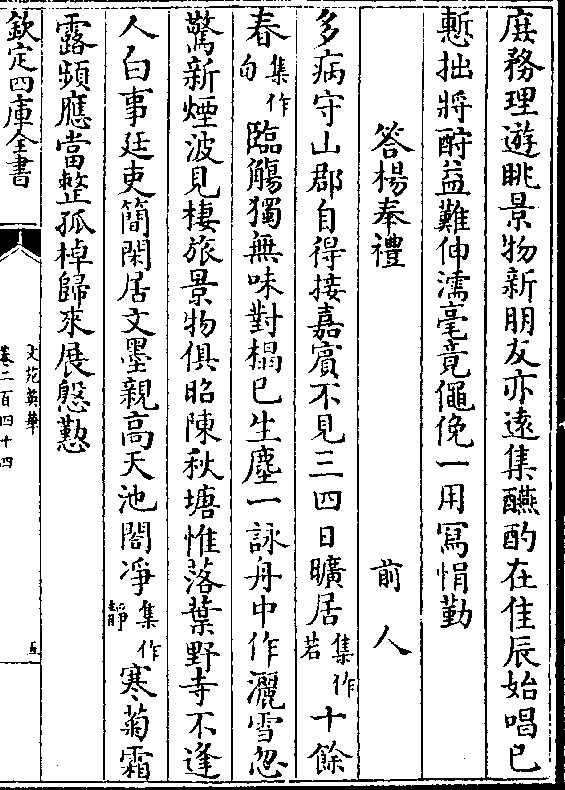 庶務理遊眺景物新朋友亦遠集醼酌在佳辰始唱已
慙拙將酧益難伸濡毫竟僶俛一用寫悁勤
答楊奉禮 前人
多病守山郡自得接嘉賔不見三四日曠居集作若十餘
春集作旬臨觴獨無味對榻已生塵一詠舟中作灑雪忽
驚新煙波見棲旅景物俱昭陳秋塘惟落葉野寺不逢
人白事廷吏簡閑居文墨親高天池閣淨集作靜寒菊霜
露頻應當整孤棹歸來展慇懃
欽定四庫全書
文苑英華
卷二百四十四
五